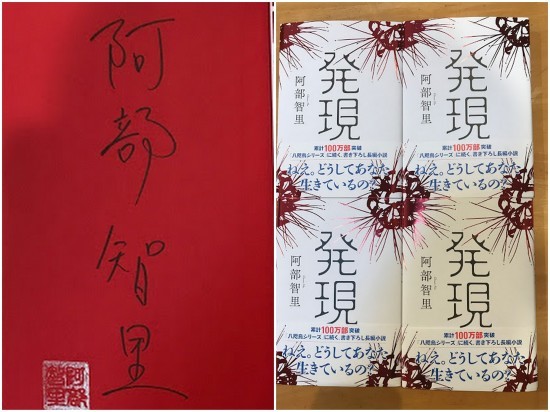 阿部智里
阿部
智里
発現
阿部智里
累計100万部突破
「八咫烏シリーズ」に続く、書き下ろし長編小説
ねえ。どうしてあなた
生きているの?
発現
阿部智里
累計100万部突破
「八咫烏シリーズ」に続く、書き下ろし長編小説
ねえ。どうしてあなた
生きているの?
発現
阿部智里
累計100万部突破
「八咫烏シリーズ」に続く、書き下ろし長編小説
ねえ。どうしてあなた
生きているの?
発現
阿部智里
累計100万部突破
「八咫烏シリーズ」に続く、書き下ろし長編小説
ねえ。どうしてあなた
生きているの?